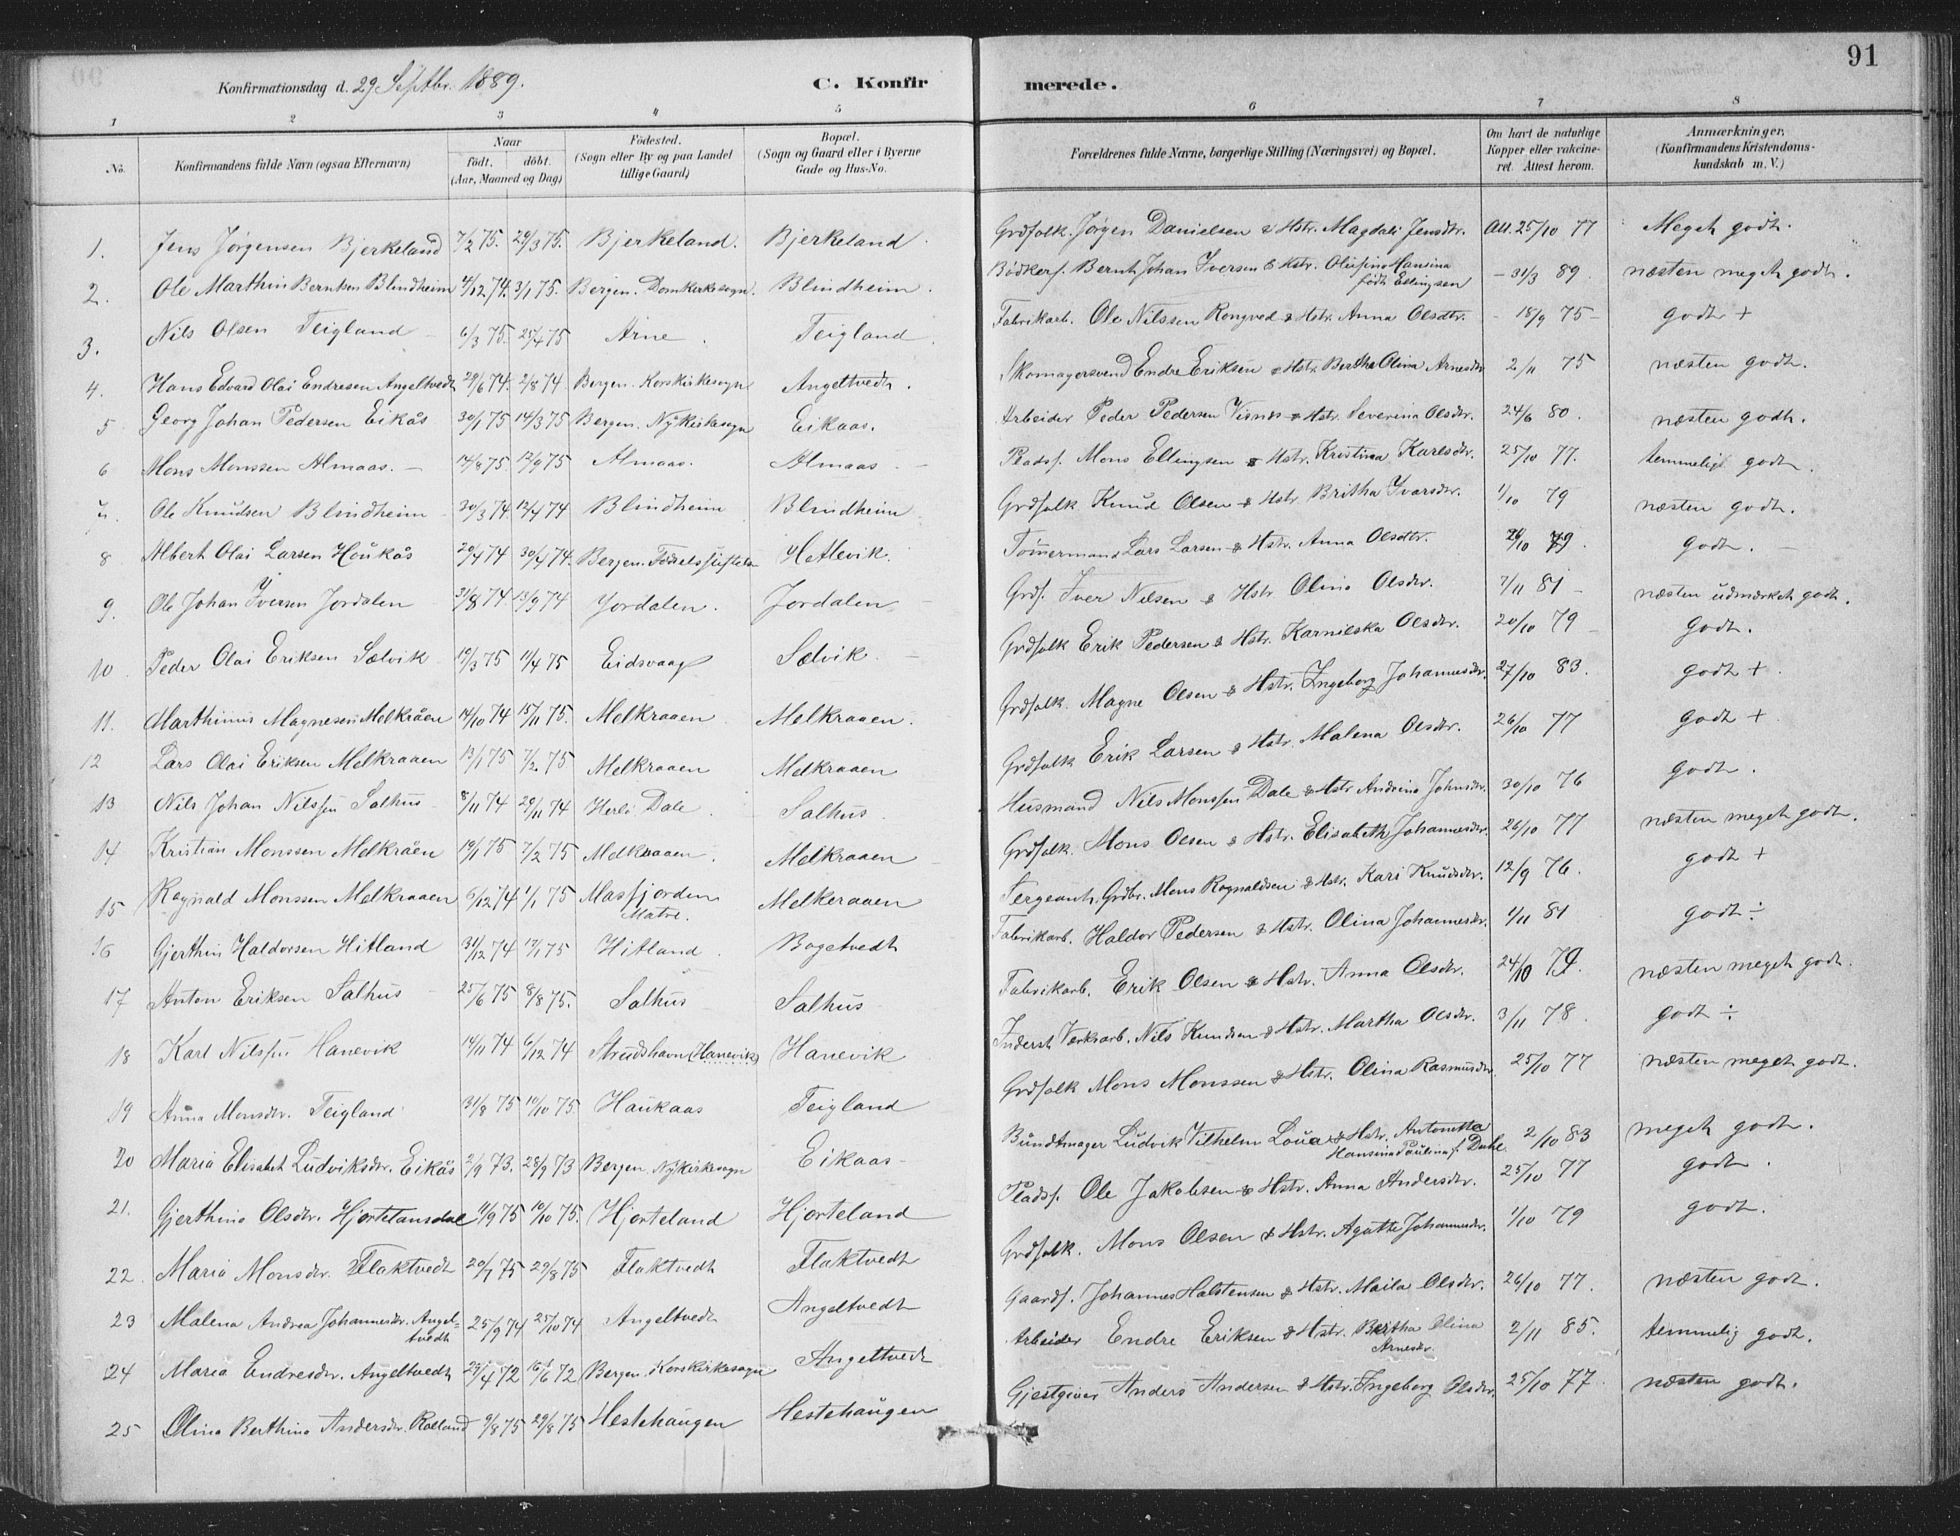 91
Konfirmationsdag d. 29 Septbr. 1889. C. Konfirmerede.
1 2 3 4 5 6 7 8
No. Konfirmandens fulde Navn (ogsaa Efternavn) Naar födt. döbt. (Aar, Maaned og Dag) Födested. (Sogn eller By og paa Landet tillige Gaard) Bopæl. (Sogn og Gaard eller i Byerne Gade og Hus-No. Forældrenes fulde Navne, borgerlige Stilling (Næringsvei) og Bopæl. Om havt de naturlige Kopper eller vakcineret. Attest herom. Anmærkninger. (Konfirmandens Kristendomskundskab m. V.)
1. Jens Jørgensen Bjerkeland 7/2 75. 29/3 75. Bjerkeland. Bjerkeland. Grdfolk. Jørgen Danielsen & Hstr. Magdali Jensdtr. Att. 25/10 77 Meget godt.
2. Ole Marthin Berntsen Blindheim 4/12 74. 3/1 75. Bergen. Domkirkesogn. Blindheim. Bødkers. Bernt Johan Iversen & Hstr. Olufine Hansina født Ellingsen – 31/3 89. næsten meget godt.
3. Nils Olsen Teigland 6/3 75. 25/4 75 Arne. Teigland. Fabrikarb. Ole Nilssen Rongved & Hstr. Anna Olsdtr. - 18/9 75 – godt +
4. Hans Edvard Olai Endresen Angeltvedt 29/6 74. 2/8 74 Bergen. Korskirkesogn Angeltvedt. Skomagersvend Endre Eriksen & Hstr. Bertha Olina Arnesdtr 2/11 75 næsten godt.
5 Georg Johan Pedersen Eikås 30/1 75 14/3 75 Bergen. Nykirkesogn Eikaas. Arbeider Peder Pedersen & Hstr. Severina Olsdtr. 24/6 80. næsten godt.
6 Mons Monssen Almaas. 14/8 75 12/9 75 Almaas. Almaas. Pladsf. Mons Ellingsen & Hstr. Kristina Karlsdtr. 25/10 77. temmelig godt.
7. Ole Knudsen Blindheim 30/3 74. 12/4 74 Blindheim Blindheim Grdfolk Knud Olsen & Hstr. Britha Ivarsdtr. 1/10 79 næsten godt.
8 Albert Olai Larsen Houkås 20/4 74 30/4 74. Bergen. Fødselsstiftelsen Hetlevik. Tømmermand Lars Larsen & Hstr. Anna Olsdtr. 79. godt.
9. Ole Johan Iversen Jordalen 31/8 74. 13/9 74 Jordalen. Jordalen Grdf. Iver Nilsen & Hstr. Olina Olsdtr. 7/11 81 næsten udmærket godt.
10 Peder Olai Eriksen Sælvik 19/3 75 11/4 75 Eidsvaag Sælvik. Grdfolk Erik Pedersen & Hstr. Karnilska Olsdtr. 20/10 79 godt.
11. Marthinus Magnesen Melkråen 14/10 74 15/11 75. Melkraaen Melkraaen. Grdfolk. Magne Olsen & Hstr. Ingeborg Johannesdtr. 27/10 83. godt +
12 Lars Olai Eriksen Melkraaen 13/1 75 7/2 75 Melkraaen Melkraaen Grdfolk Erik Larsen & Hstr. Malena Olsdtr. 26/10 77 godt +
13 Nils Johan Nilssen Salhus 8/11 74 29/11 74 Herlø Dale Salhus. Husmand Nils Monssen Dale & Hstr Andrina Johnsdtr. 30/10 76 godt.
14 Kristian Monssen Melkråen 19/1 75 7/2 75 Melkraaen. Melkraaen Grdfolk. Mons Olsen & Hstr. Elisabeth Johannesdtr. 26/10 77 næsten meget godt.
15 Ragnald Monssen Melkraaen 6/12 74 1/1 75 Masfjorden Matre. Melkeraaen Sergeant, Grdbr. Mons Ragnaldsen & Hstr. Kari Knudsdtr. 12/9 76. godt +
16 Gjerthin Haldorsen Hitland 31/12 74 17/1 75 Hitland. Bogetvedt Fabrikarb. Haldor Pedersen & Hstr. Olina Johannesdtr. 1/11 81 godt ÷
17 Anton Eriksen Salhus 25/6 75 8/8 75. Salhus Salhus Fabrikarb. Erik Olsen & Hstr. Anna Olsdtr. 24/10 79. næsten meget godt.
18 Karl Nilssen Hanevik 14/11 74 6/12 74 Strudshavn (Hanevik) Hanevik Inderst Værksarb. Nils Knudsen & Hstr. Martha Olsdtr. 3/11 78. godt ÷
19 Anna Monsdtr. Teigland 31/8 75 10/10 75. Haukaas Teigland Grdfolk Mons Monssen & Hstr. Olina Rasmusdtr. 25/10 77 næsten meget godt.
20 Maria Elisabet Ludviksdtr. Eikås 2/9 73. 28/9 73 Bergen. Nykirkesogn Eikaas Bundtmager Ludvik Vilhelm Loua & Hstr. Antonetta Hansina Paulina f. Dahl 2/10 83 meget godt.
21. Gjerthine Olsdtr. Hjortelandsdal 11/9 75 10/10 75. Hjorteland Hjorteland Pladsf. Ole Jakobsen & Hstr. Anna Andersdtr. 25/10 77 godt.
22. Maria Monsdtr. Flaktvedt 20/7 75 29/8 75 Flaktvedt Flaktvedt Grdfolk. Mons Olsen & Hstr. Agathe Johannesdtr. 1/10 79 godt.
23 Malena Andrea Johannesdtr. Angeltvedt 25/9 74 25/10 74 Angeltvedt Angeltvedt Gaardf. Johannes Halstensen & Hstr. Maila Olsdtr. 26/10 77. næsten godt.
24 Maria Endresdtr. Angeltvedt 29/4 72 16/6 72 Bergen. Korskirkesogn Angeltvedt Arbeider Endre Eriksen & Hstr. Bertha Olina Arnesdtr. 2/11 85. temmelig godt.
25 Olina Berthine Andersdtr. Rolland 9/8 75 29/8 75 Hestehaugen Hestehaugen Gjestgiver Anders Andersen & Hstr. Ingeborg Olsdtr. 25/10 77. næsten godt.